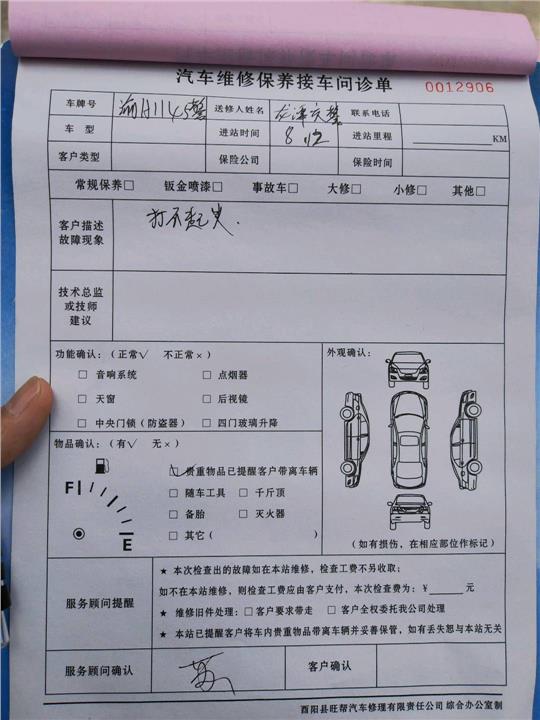 汽车维修保养接车问诊单
0012906
车牌号 渝H1145警 送修人姓名 联系电话
车型 进站时间 进站里程 KM
客户类型 保险公司 保险时间
常规保养□ 钣金喷漆□ 事故车□ 大修□ 小修□ 其他□
客户描述
故障现象
打不起火.
技术总监
或技师
建议
功能确认：（正常√ 不正常×）
□ 音响系统 □ 点烟器
□ 天窗 □ 后视镜
□ 中央门锁（防盗器） □ 四门玻璃升降
物品确认：（有√ 无×）
贵重物品已提醒客户带离车辆
□ 随车工具 □ 千斤顶
□ 备胎 □ 灭火器
□ 其它（ ）
F
E
外观确认：
（如有损伤，在相应部位作标记）
服务顾问提醒
★ 本次检查出的故障如在本站维修，检查工费不另收取；
如不在本站维修，则检查工费应由客户支付，本次检查费为：￥ 元
★ 维修旧件处理：□ 客户要求带走 □ 客户全权委托我公司处理
★ 本站已提醒客户将车内贵重物品带离车辆并妥善保管，如有丢失恕与本站无关
服务顾问确认 客户确认
酉阳县旺帮汽车修理有限责任公司 综合办公室制